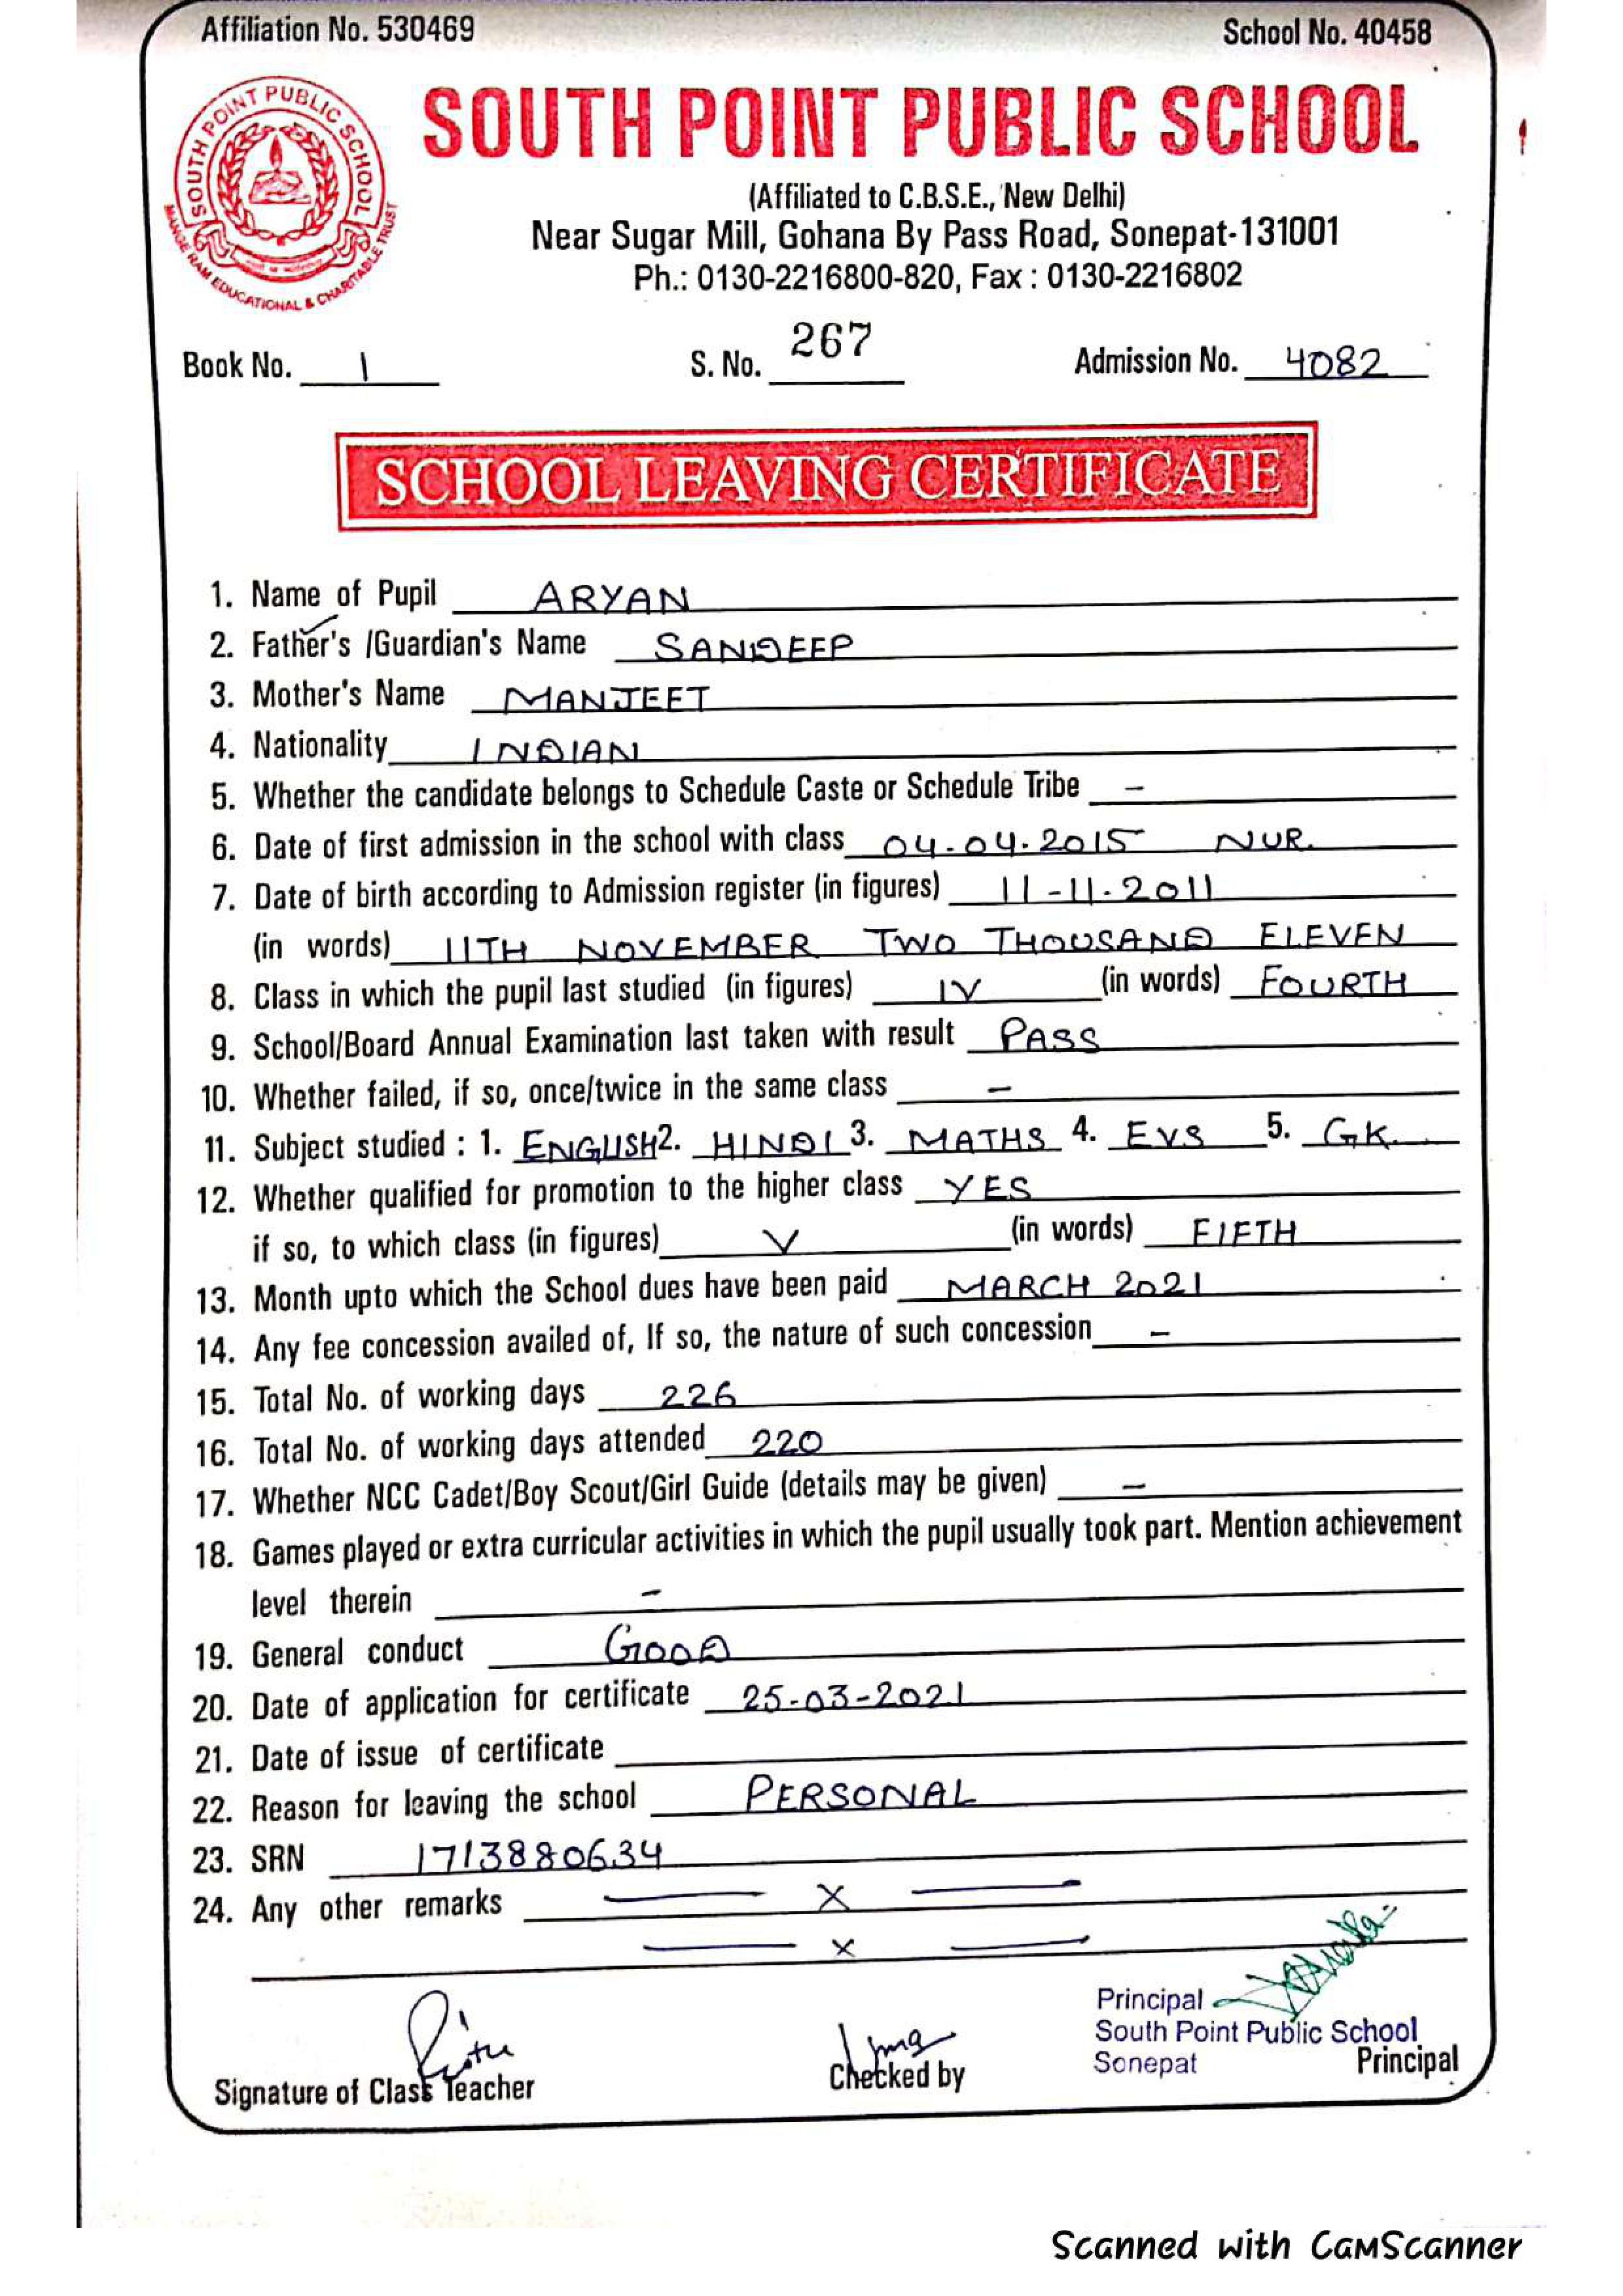 Affiliation No. 530469 School No. 40458
SOUTH POINT PUBLIC SCHOOL
MANGE RAM EDUCATIONAL & CHARITABLE TRUST
SOUTH POINT PUBLIC SCHOOL
(Affiliated to C.B.S.E., New Delhi)
Near Sugar Mill, Gohana By Pass Road, Sonepat-131001
Ph.: 0130-2216800-820, Fax : 0130-2216802
Book No. 1 S. No. 267 Admission No. 4082
SCHOOL LEAVING CERTIFICATE
1. Name of Pupil ARYAN
2. Father's /Guardian's Name SANDEEP
3. Mother's Name MANJEET
4. Nationality INDIAN
5. Whether the candidate belongs to Schedule Caste or Schedule Tribe -
6. Date of first admission in the school with class 04-04-2015 NUR.
7. Date of birth according to Admission register (in figures) 11-11-2011
(in words) 11TH NOVEMBER TWO THOUSAND ELEVEN
8. Class in which the pupil last studied (in figures) IV (in words) FOURTH
9. School/Board Annual Examination last taken with result PASS
10. Whether failed, if so, once/twice in the same class -
11. Subject studied : 1. ENGLISH 2. HINDI 3. MATHS 4. EVS 5. GK.
12. Whether qualified for promotion to the higher class YES
if so, to which class (in figures) V (in words) FIFTH
13. Month upto which the School dues have been paid MARCH 2021
14. Any fee concession availed of, If so, the nature of such concession -
15. Total No. of working days 226
16. Total No. of working days attended 220
17. Whether NCC Cadet/Boy Scout/Girl Guide (details may be given) -
18. Games played or extra curricular activities in which the pupil usually took part. Mention achievement
level therein -
19. General conduct GOOD
20. Date of application for certificate 25-03-2021
21. Date of issue of certificate
22. Reason for leaving the school PERSONAL
23. SRN 1713880634
24. Any other remarks — X —
— X —
Principal
South Point Public School
Sonepat
Signature of Class Teacher Checked by Principal
Scanned with CamScanner